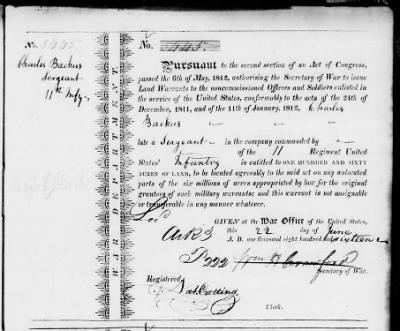 No. 5445.
Charles Backus
Sergeant
11th Infty.
WAR DEPARTMENT.
No. 5445.
Pursuant to the second section of an Act of Congress,
passed the 6th of May, 1812, authorising the Secretary of War to issue
Land Warrants to the noncommissioned Officers and Soldiers enlisted
in the service of the United States, conformably to the acts of the 24th of
December, 1811, and of the 11th of January, 1812, Charles
Backus
late a Sergeant in the company commanded by
of the 11 Regiment United
States' Infantry is entitled to ONE HUNDRED AND SIXTY
ACRES OF LAND, to be located agreeably to the said act on any unlocated
parts of the six millions of acres appropriated by law for the original
grantees of such military warrants; and this warrant is not assignable
or transferable in any manner whatever.
GIVEN at the War Office of the United States,
this 22 day of June
A. D. one thousand eight hundred and sixteen
Wm H Crawford
Secretary of War.
Registered
Clerk.